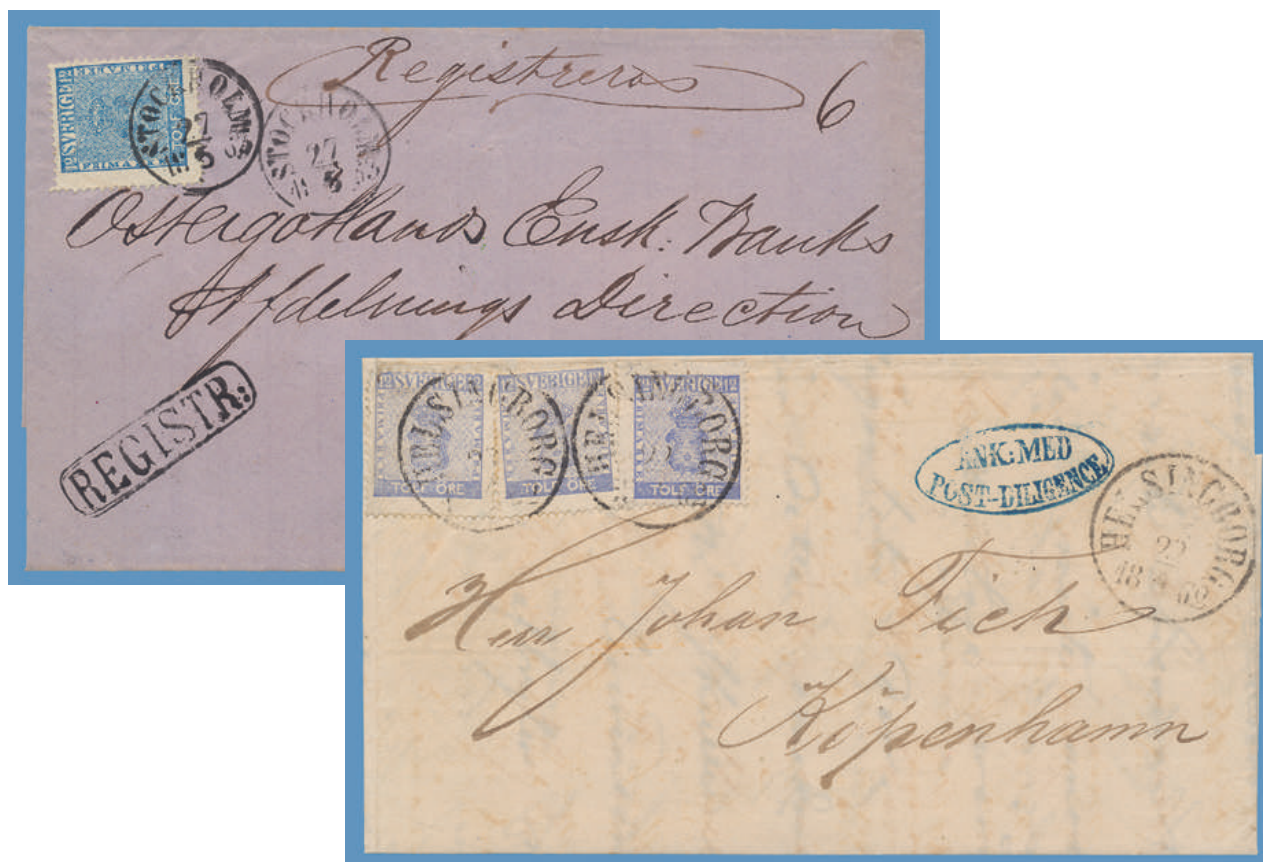 Registreras
6
12 SVERIGE 12
TOLF ÖRE
FRIMÄRKE
STOCKHOLM
27
5
STOCKHOLM
27
Ostergothlands Ensk. Banks
Afdelnings Direction
REGISTR:
12 SVERIGE 12
TOLF ÖRE
12 SVERIGE 12
TOLF ÖRE
SVERIGE 12
TOLF ÖRE
HELSINGBORG
HELSINGBORG
ANK: MED
POST-DILIGENCE
HELSINGBORG
22
18 66
Herr Johan Fick
Köpenhamn